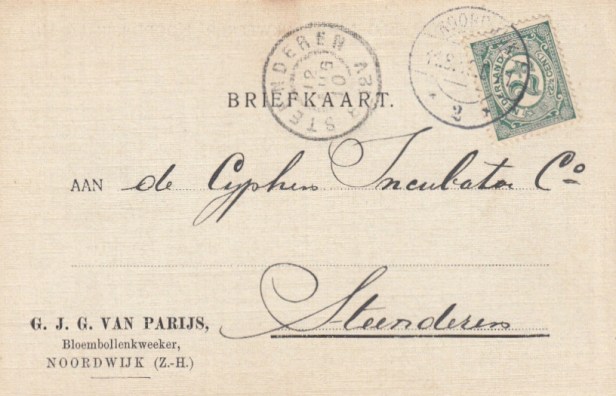 STEENDEREN
BRIEFKAART.
2
NEDERLAND
2½
CENT
AAN de Cyphers Incubator Co
Steenderen
G. J. G. VAN PARIJS,
Bloembollenkweeker,
NOORDWIJK (Z.-H.)